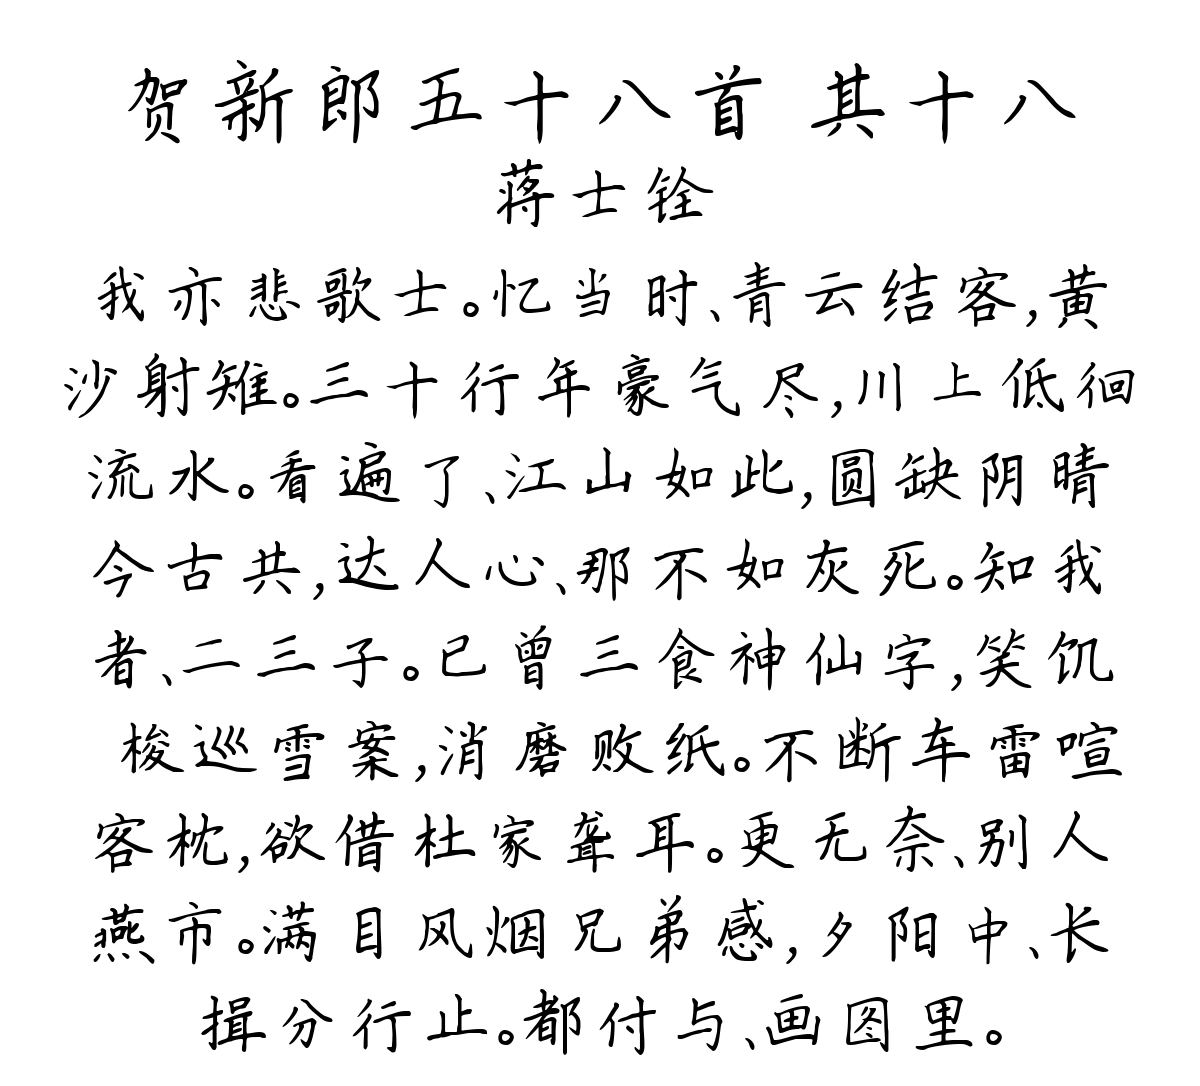 贺新郎五十八首 其十八
蒋士铨
我亦悲歌士。忆当时、青云结客,黄
沙射雉。三十行年豪气尽,川上低徊
流水。看遍了、江山如此,圆缺阴晴
今古共,达人心、那不如灰死。知我
者、二三子。已曾三食神仙字,笑饥
梭巡雪案,消磨败纸。不断车雷喧
客枕,欲借杜家聋耳。更无奈、别人
燕市。满目风烟兄弟感,夕阳中、长
揖分行止。都付与、画图里。